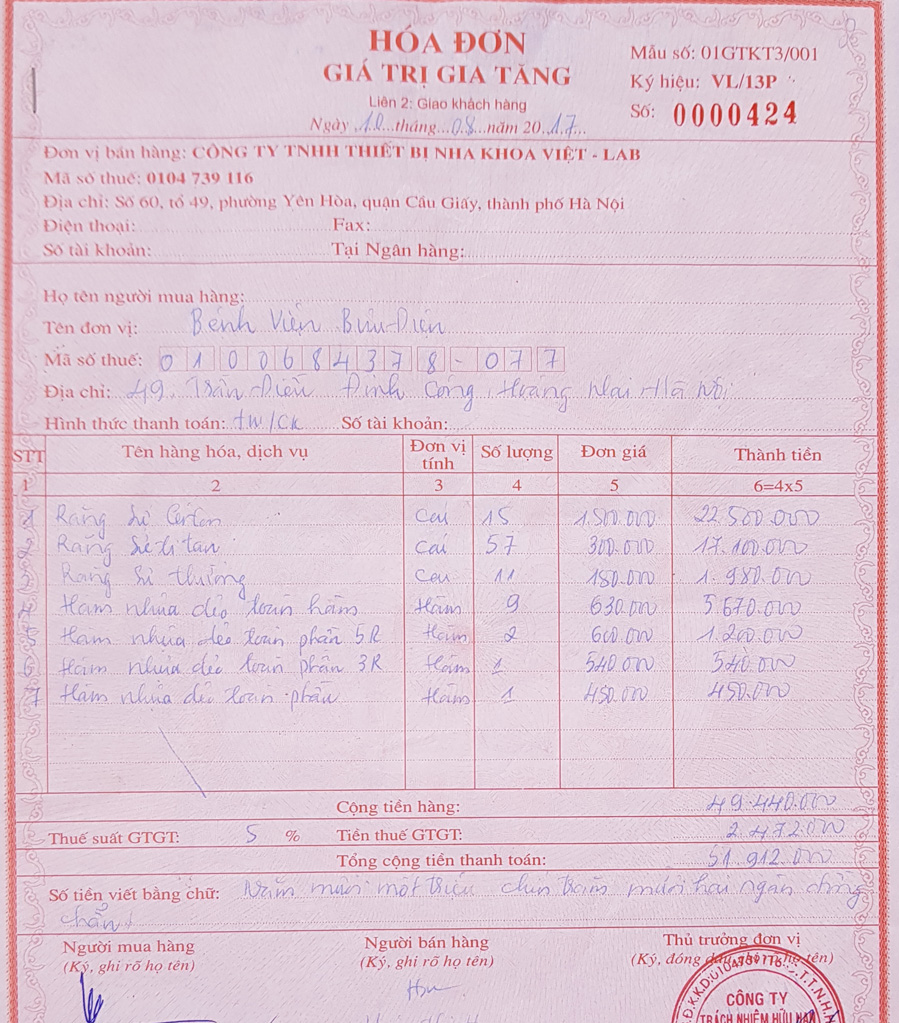 HÓA ĐƠN
GIÁ TRỊ GIA TĂNG
Liên 2: Giao khách hàng
Ngày 10 tháng 08 năm 2017
Mẫu số: 01GTKT3/001
Ký hiệu: VL/13P
Số: 0000424
Đơn vị bán hàng: CÔNG TY TNHH THIẾT BỊ NHA KHOA VIỆT - LAB
Mã số thuế: 0104 739 116
Địa chỉ: Số 60, tổ 49, phường Yên Hòa, quận Cầu Giấy, thành phố Hà Nội
Điện thoại: Fax:
Số tài khoản: Tại Ngân hàng:
Họ tên người mua hàng:
Tên đơn vị: Bệnh Viện Bưu Điện
Mã số thuế: 0100684378-077
Địa chỉ: 49. Trần Điền Định Công, Hoàng Mai Hà Nội
Hình thức thanh toán: TM/CK Số tài khoản:
STT Tên hàng hóa, dịch vụ Đơn vị tính Số lượng Đơn giá Thành tiền
1 2 3 4 5 6=4x5
1 Răng sứ Certon Cái 15 1.500.000 22.500.000
2 Răng sứ titan Cái 57 300.000 17.100.000
3 Răng sứ thường Cái 11 180.000 1.980.000
4 Hàm nhựa dẻo toàn hàm Hàm 9 630.000 5.670.000
5 Hàm nhựa dẻo toàn phần 5R Hàm 2 600.000 1.200.000
6 Hàm nhựa dẻo toàn phần 3R Hàm 1 540.000 540.000
7 Hàm nhựa dẻo toàn phần Hàm 1 450.000 450.000
Cộng tiền hàng: 49.440.000
Thuế suất GTGT: 5 % Tiền thuế GTGT: 2.472.000
Tổng cộng tiền thanh toán: 51.912.000
Số tiền viết bằng chữ: Năm mươi một triệu chín trăm mười hai ngàn đồng
chẵn
Người mua hàng Người bán hàng Thủ trưởng đơn vị
(Ký, ghi rõ họ tên) (Ký, ghi rõ họ tên) (Ký, đóng dấu, ghi họ tên)
CÔNG TY
TRÁCH NHIỆM HỮU HẠN